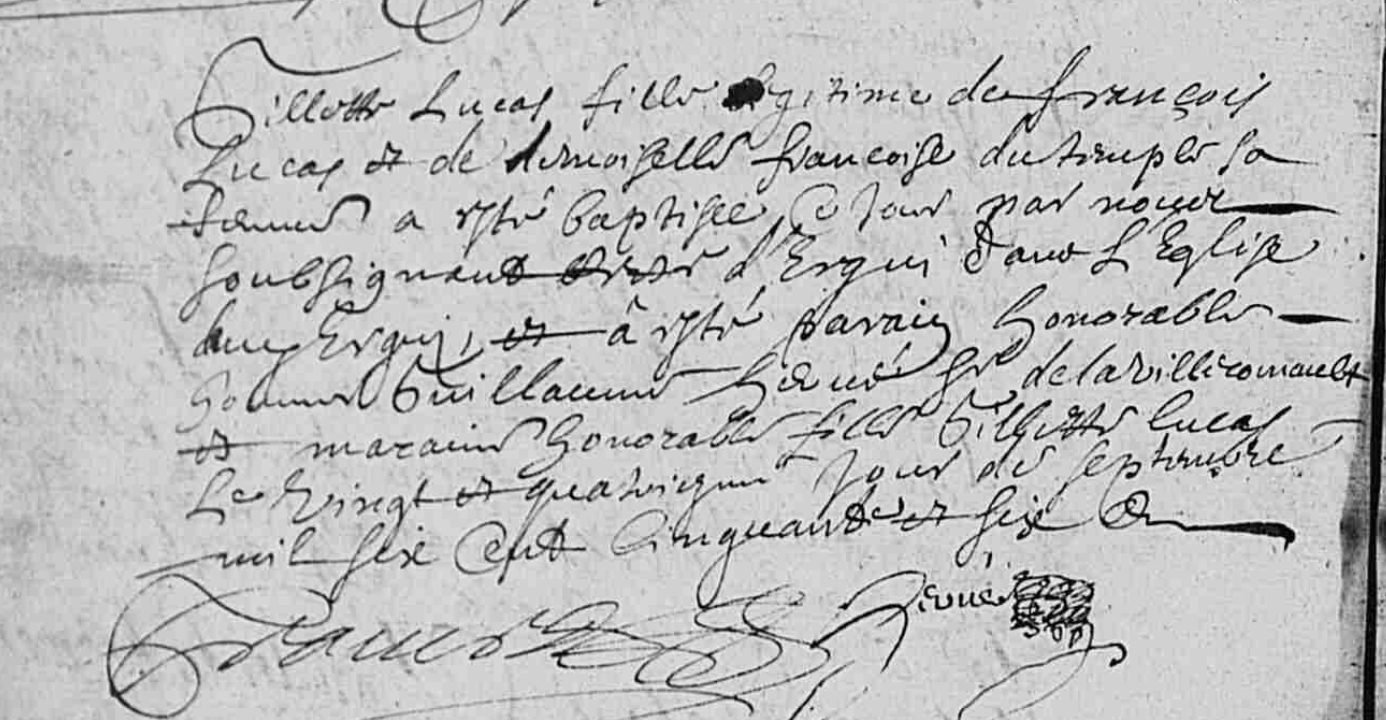 Gillette Lucas fille legitime de françois
Lucas et de demoiselle francoise du temple sa
femme a esté baptisée ce jour par nous
soubsignant d'Erqui dans L'Eglise
Erqui, et â esté parain honorable
homme Guillaume hervé sr de lavillecomault
et maraine honorable fille Gillette lucas
Le vingt et quatriesme jour de septembre
mil six cent cinquante et six
hervé